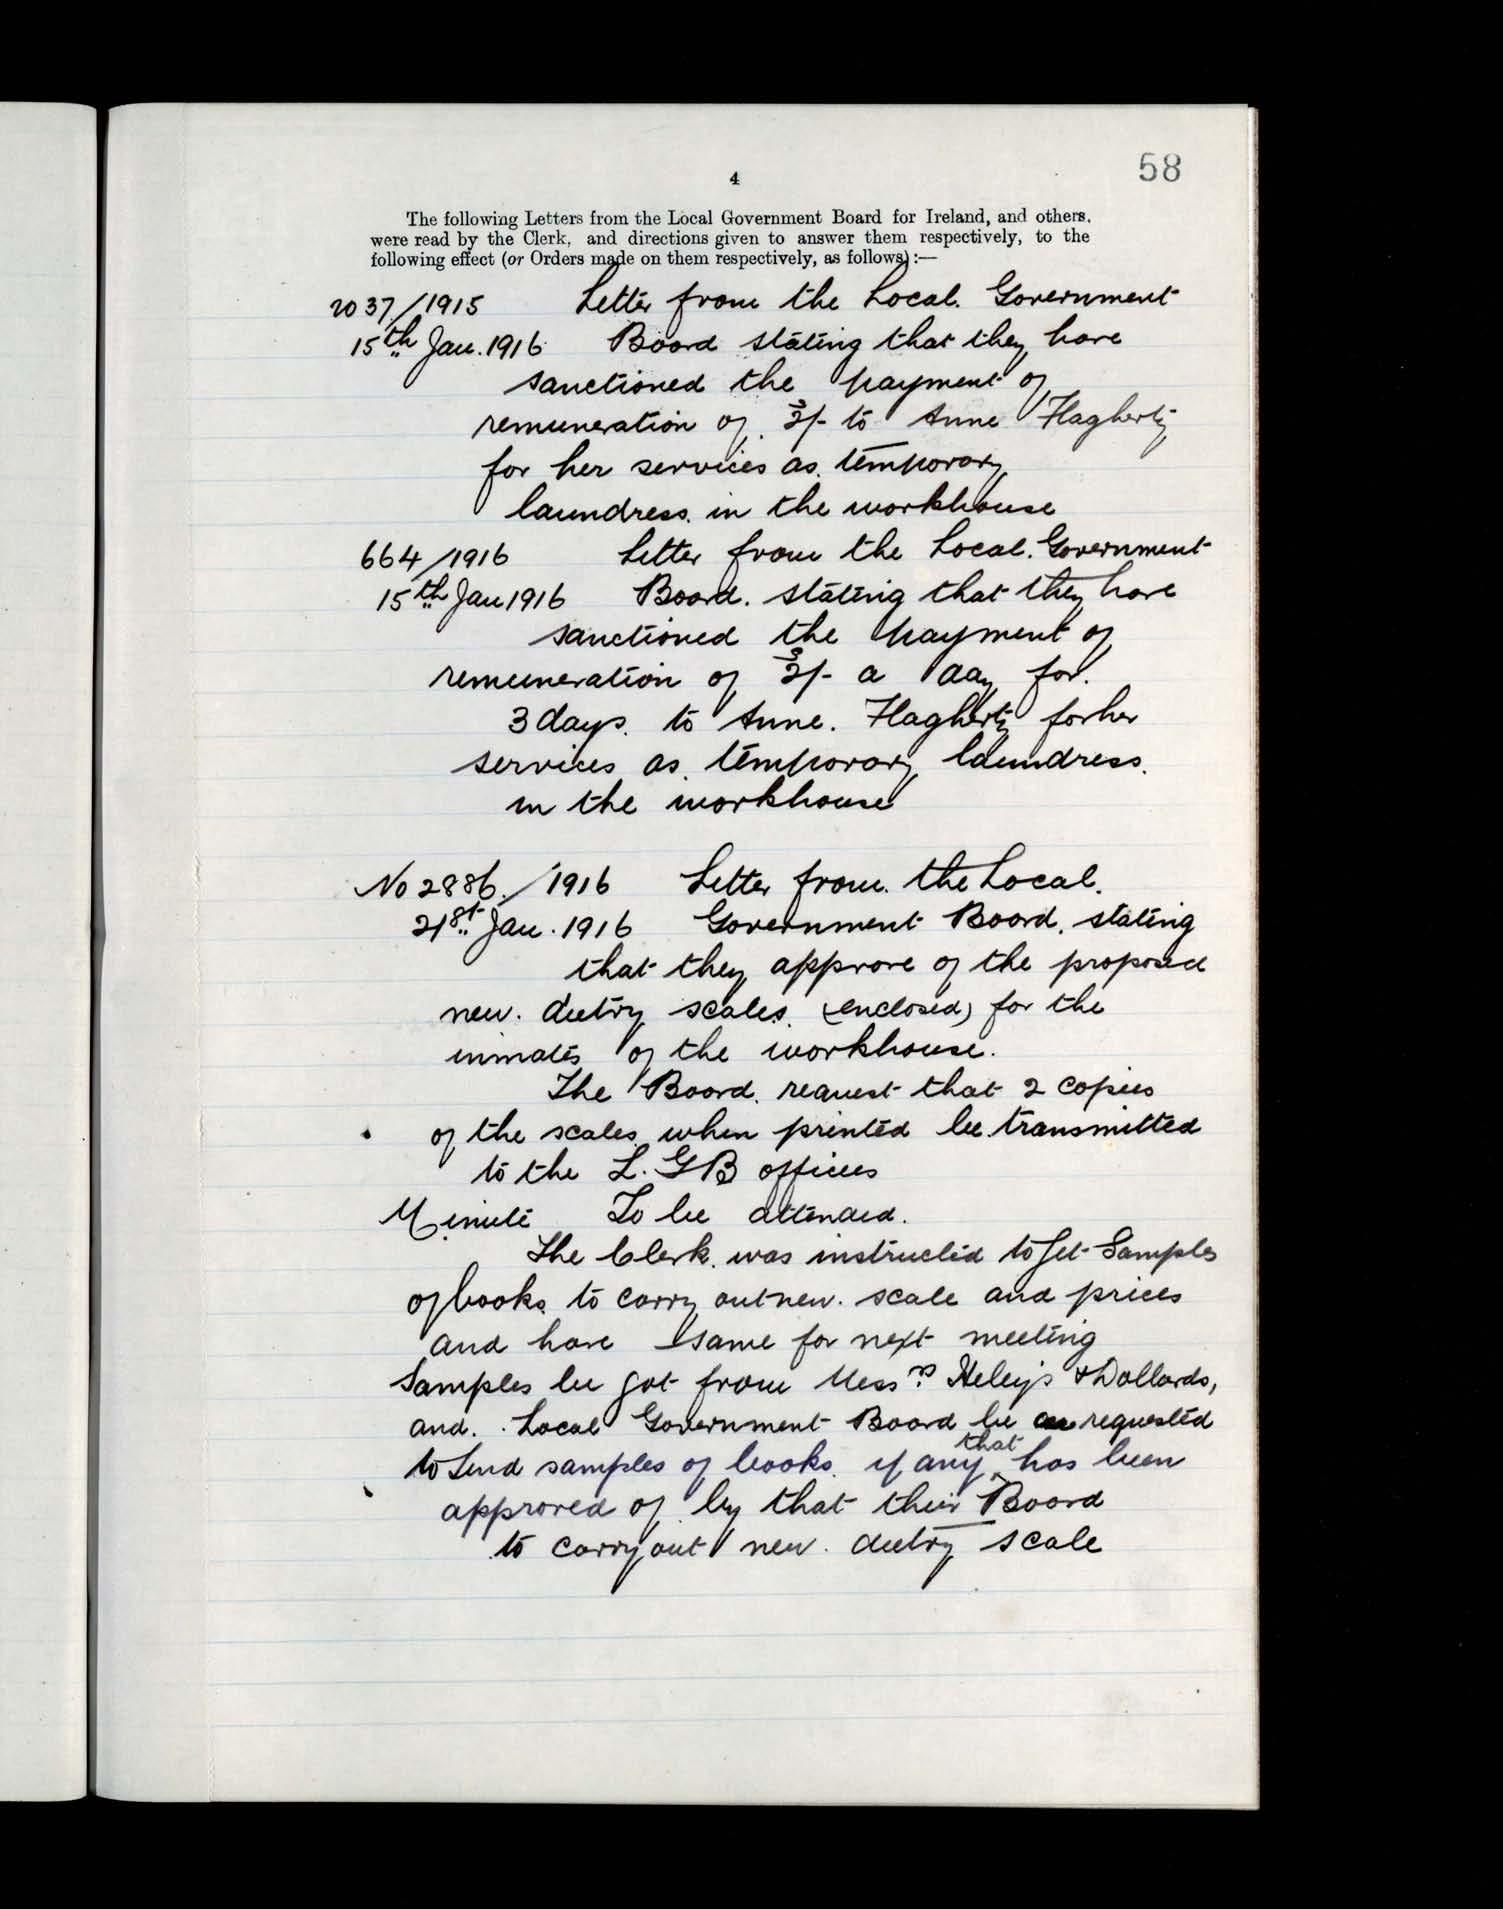 58
4
The following Letters from the Local Government Board for Ireland, and others,
were read by the Clerk, and directions given to answer them respectively, to the
following effect (or Orders made on them respectively, as follows) :—
2037/1915 Letter from the Local. Government
15th Jan. 1916 Board stating that they have
sanctioned the payment of
remuneration of 3/- to Anne Flagherty
for her services as temporary
laundress in the workhouse
664/1916 Letter from the Local. Government
15th Jan 1916 Board. stating that they have
sanctioned the payment of
remuneration of 3/- a day for.
3 days. to Anne. Flagherty for her
services as temporary laundress.
in the workhouse
No 2886./1916 Letter from. the Local.
21st Jan. 1916 Government Board. stating
that they approve of the proposed
new. dietry scales. (enclosed) for the
inmates of the workhouse.
The Board. request that 2 copies
of the scales when printed be transmitted
to the L. G B offices
Minute To be attended.
The Clerk. was instructed to get Samples
of books to carry out new. scale and prices
and have same for next meeting
Samples be got from Messrs Heley's & Dollards,
and. Local Government Board be requested
to Send samples of books if any that has been
approved of by that their Board
to carry out new. dietry scale